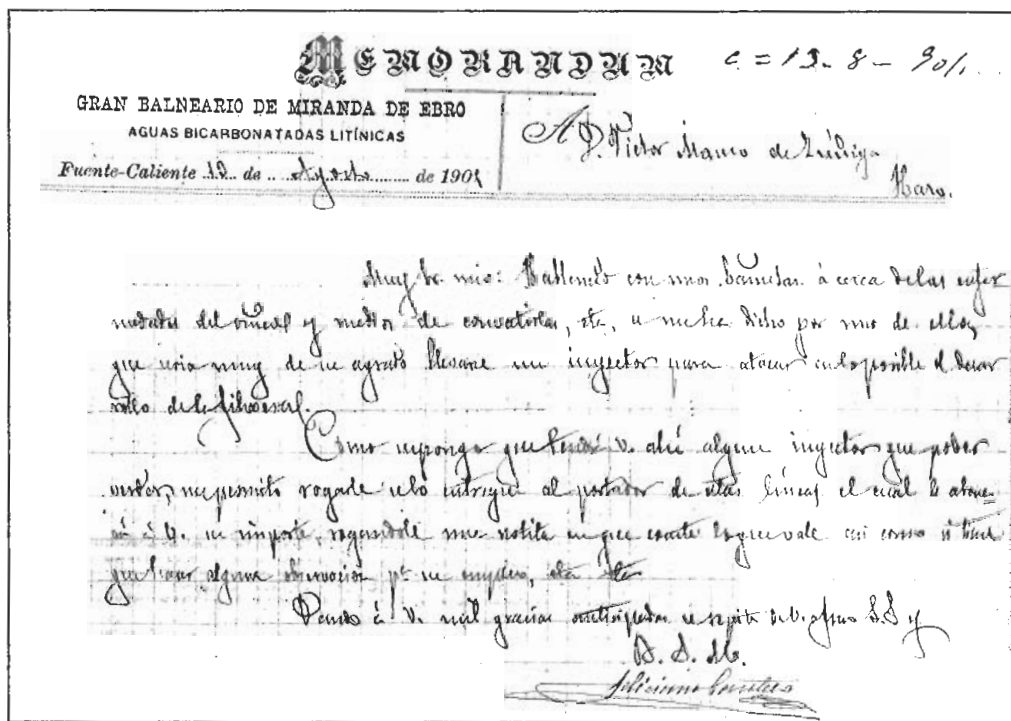 MEMORANDUM c = 13 - 8 - 901.
GRAN BALNEARIO DE MIRANDA DE EBRO
AGUAS BICARBONATADAS LITÍNICAS
Fuente-Caliente 12 de Agosto de 1901
A D. Victor Manso de Zúñiga
Haro.
Muy Sr. mio: Hablando con unos bañistas á cerca de las enfer
medades del viñedo y medios de combatirlas, etc, se me ha dicho por uno de ellos,
que seria muy de su agrado llevarse un inyector para atacar en lo posible el desar
rollo de la filoxera.
Como supongo que tendrá V. ahí algun inyector que poder
vender, me permito rogarle se lo entregue al portador de estas líneas, el cual le abona-
rá á V. su importe, rogandole una notita en que conste lo que vale asi como si tiene
que hacer alguna observacion pª su empleo, etc etc
Dando á V. mil gracias anticipadas se repite de V. afmo S.S y
Feliciano